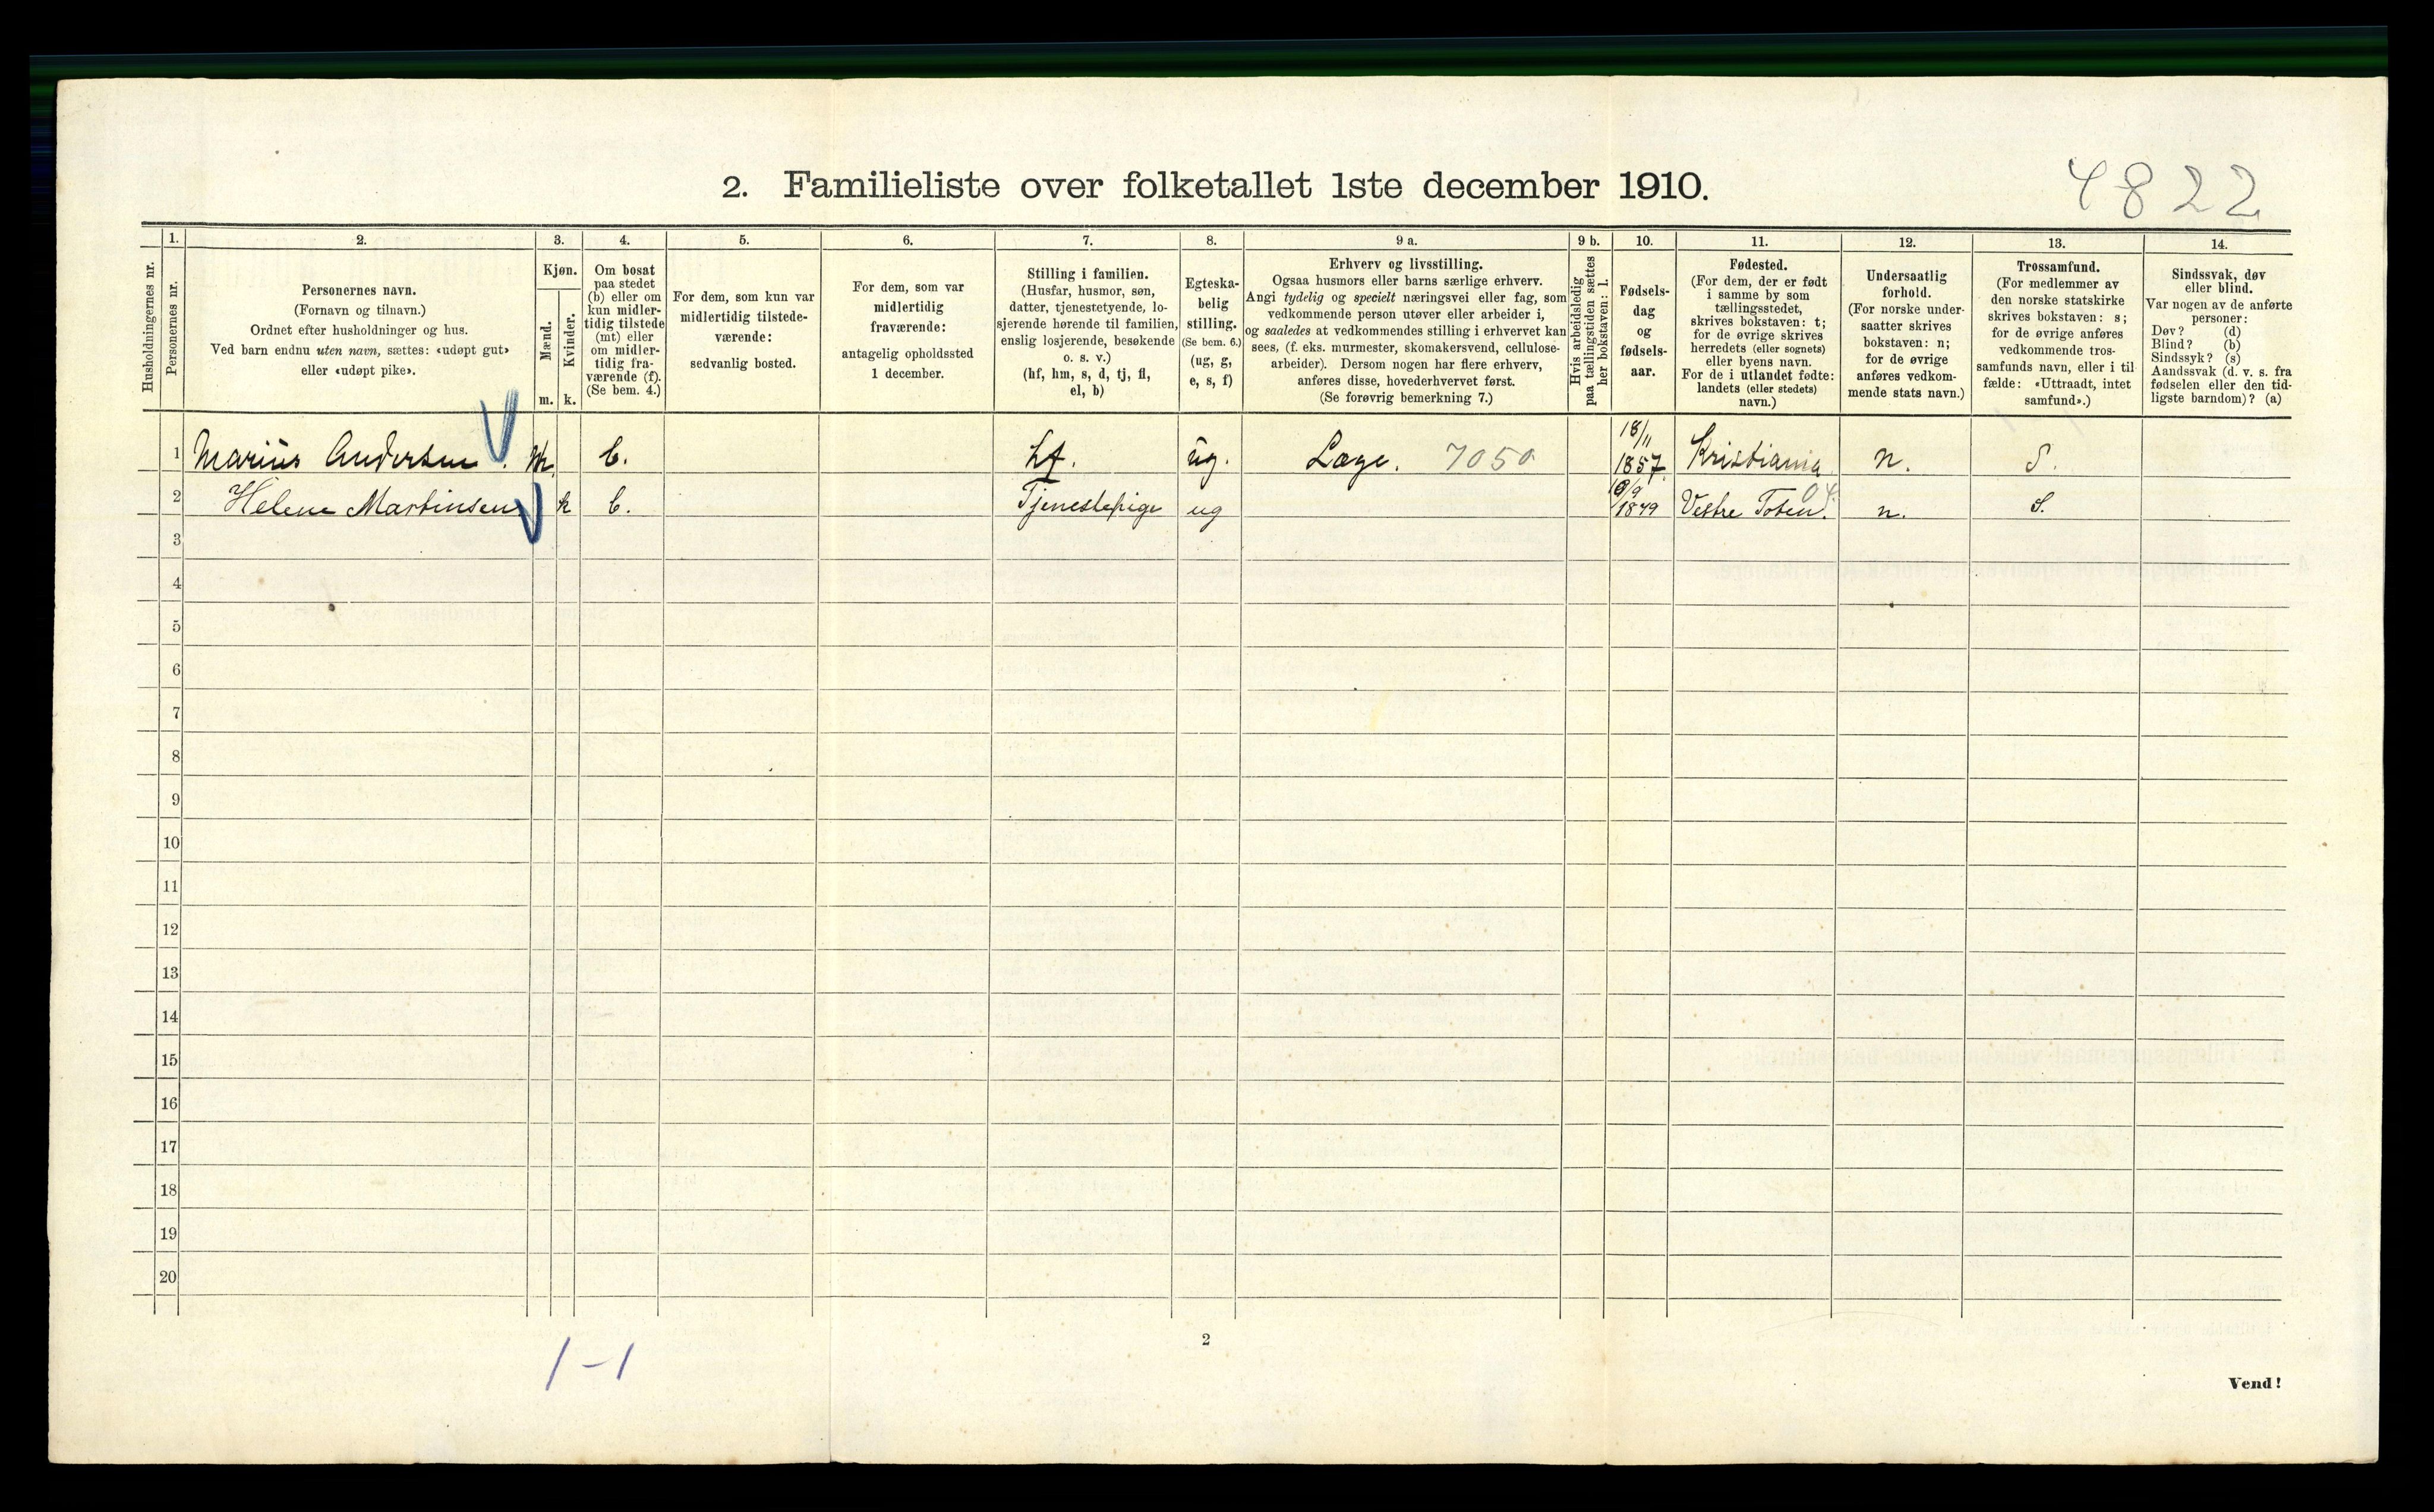 2. Familieliste over folketallet 1ste december 1910.
4822
1.
2.
3.
4.
5.
6.
7.
8.
9 a.
9 b.
10.
11.
12.
13.
14.
Husholdningernes nr.
Personernes nr.
Personernes navn.
(Fornavn og tilnavn.)
Ordnet efter husholdninger og hus.
Ved barn endnu uten navn, sættes: «udøpt gut»
eller «udøpt pike».
Kjøn.
Mænd.
Kvinder.
m.
k.
Om bosat
paa stedet
(b) eller om
kun midler-
tidig tilstede
(mt) eller
om midler-
tidig fra-
værende (f).
(Se bem. 4.)
For dem, som kun var
midlertidig tilstede-
værende:
sedvanlig bosted.
For dem, som var
midlertidig
fraværende:
antagelig opholdssted
1 december.
Stilling i familien.
(Husfar, husmor, søn,
datter, tjenestetyende, lo-
sjerende hørende til familien,
enslig losjerende, besøkende
o. s. v.)
(hf, hm, s, d, tj, fl,
el, b)
Egteska-
belig
stilling.
(Se bem. 6.)
(ug, g,
e, s, f)
Erhverv og livsstilling.
Ogsaa husmors eller barns særlige erhverv.
Angi tydelig og specielt næringsvei eller fag, som
vedkommende person utøver eller arbeider i,
og saaledes at vedkommendes stilling i erhvervet kan
sees, (f. eks. murmester, skomakersvend, cellulose-
arbeider). Dersom nogen har flere erhverv,
anføres disse, hovederhvervet først.
(Se forøvrig bemerkning 7.)
Hvis arbeidsledig
paa tællingstiden sættes
her bokstaven: l.
Fødsels-
dag
og
fødsels-
aar.
Fødested.
(For dem, der er født
i samme by som
tællingsstedet,
skrives bokstaven: t;
for de øvrige skrives
herredets (eller sognets)
eller byens navn.
For de i utlandet fødte:
landets (eller stedets)
navn.)
Undersaatlig
forhold.
(For norske under-
saatter skrives
bokstaven: n;
for de øvrige
anføres vedkom-
mende stats navn.)
Trossamfund.
(For medlemmer av
den norske statskirke
skrives bokstaven: s;
for de øvrige anføres
vedkommende tros-
samfunds navn, eller i til-
fælde: «Uttraadt, intet
samfund».)
Sindssvak, døv
eller blind.
Var nogen av de anførte
personer:
Døv? (d)
Blind? (b)
Sindssyk? (s)
Aandssvak (d. v. s. fra
fødselen eller den tid-
ligste barndom)? (a)
1 Marius Andersen. m. b. hf. ug. Læge. 7050 18/11 1857. Kristiania n. S.
2 Helene Martinsen k b. Tjenestepige ug 1849 Vestre Toten. 04. n. S.
3
4
5
6
7
8
9
10
11
12
13
14
15
16
17
18
19
20
1-1
2
Vend!